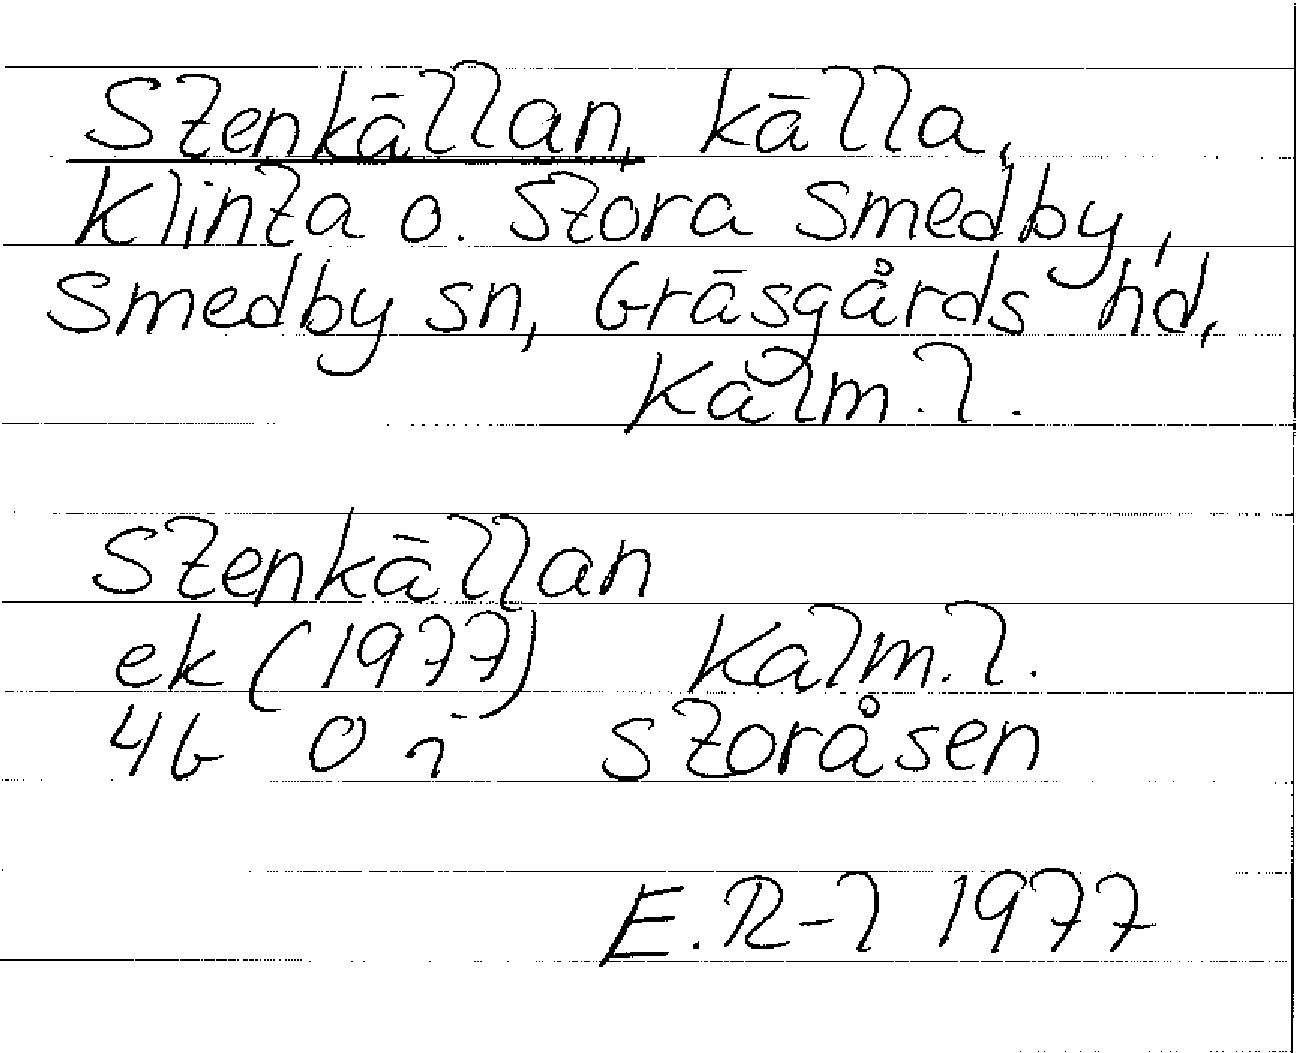 Stenkällan, källa,
Klinta o. Stora Smedby,
Smedby sn, Gräsgårds hd,
Kalm. l.
Stenkällan
ek (1977) Kalm. l.
4b 0 i Storåsen
E. R-l 1977